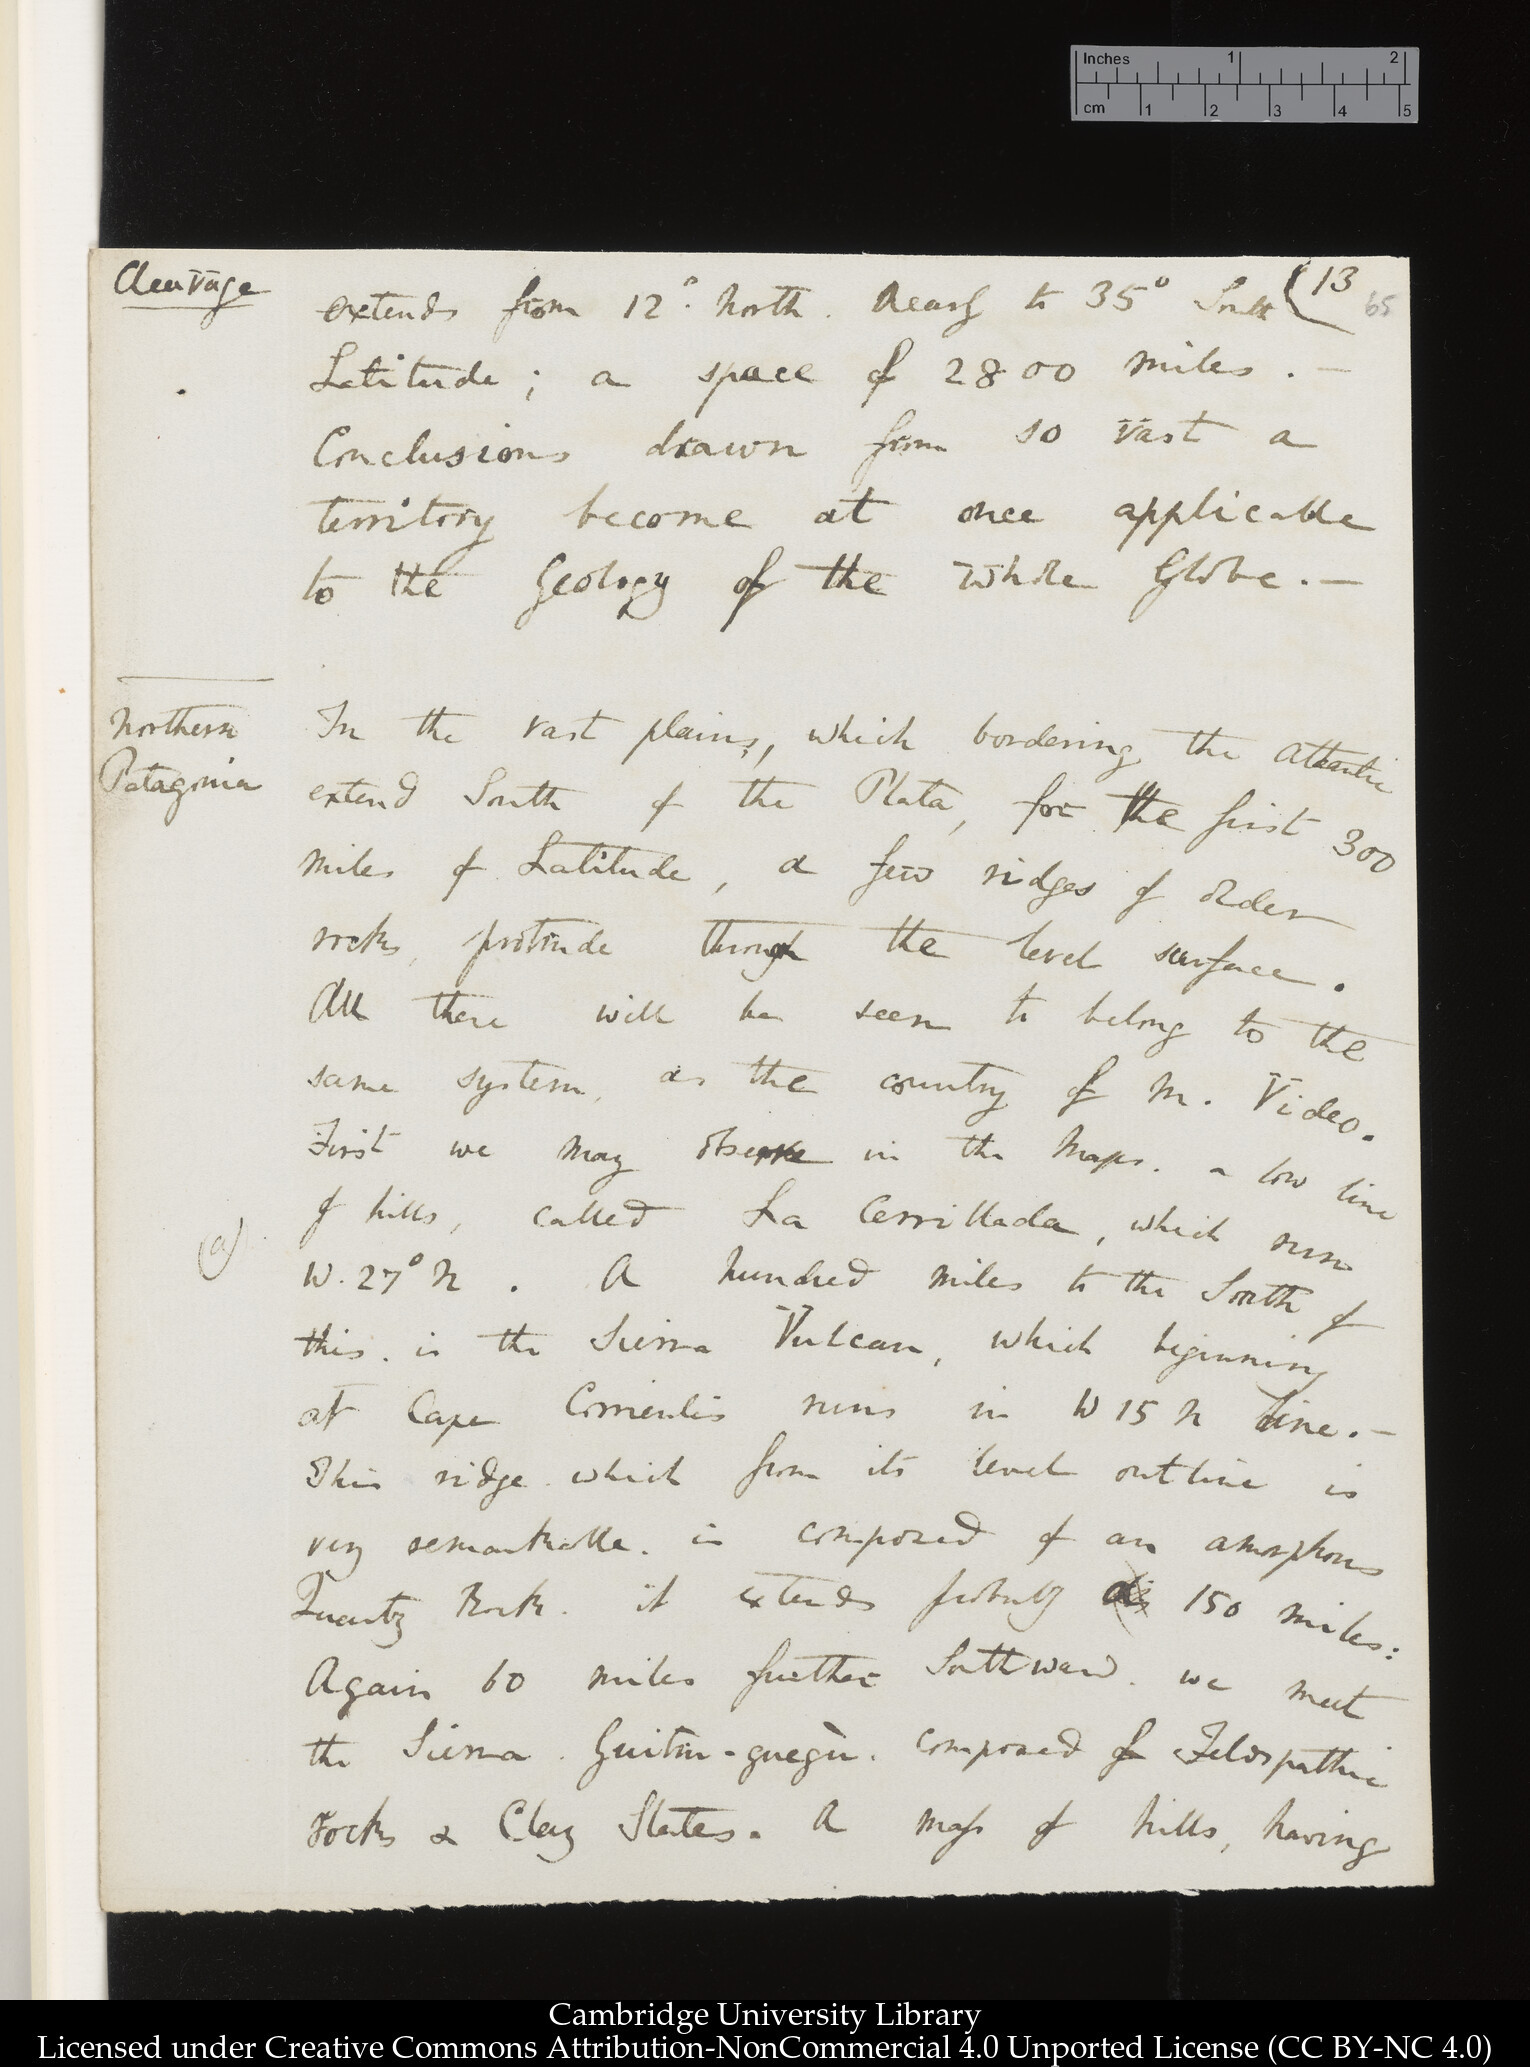 Inches 1 2
cm 1 2 3 4 5
Cleavage
(13
65
extends from 12°. North. nearly to 35° South
Latitude; a space of 2800 miles. —
Conclusions drawn from so vast a
territory become at once applicable
to the Geology of the whole Globe. —
Northern
Patagonia
In the vast plains, which bordering the Atlantic
extend South of the Plata, for the first 300
miles of Latitude, a few ridges of older
rocks, protrude through the level surface.
All these will be seen to belong to the
same system, as the country of M. Video.
First we may observe in the Maps. a low line
of hills, called La Cerrillada, which runs
(a)
W. 27° N. A hundred miles to the South of
this. is the Sierra Vulcan, which beginning
at Cape Corrientes runs in W 15 N line. —
This ridge which from its level outline is
very remarkable. is composed of an amorphous
Quartz Rock. it extends probably 150 miles:
Again 60 miles further Southward. we meet
the Sierra. Guitru-guegu. composed of Feldspathic
rocks & Clay Slates. A mass of hills, having
Cambridge University Library
Licensed under Creative Commons Attribution-NonCommercial 4.0 Unported License (CC BY-NC 4.0)